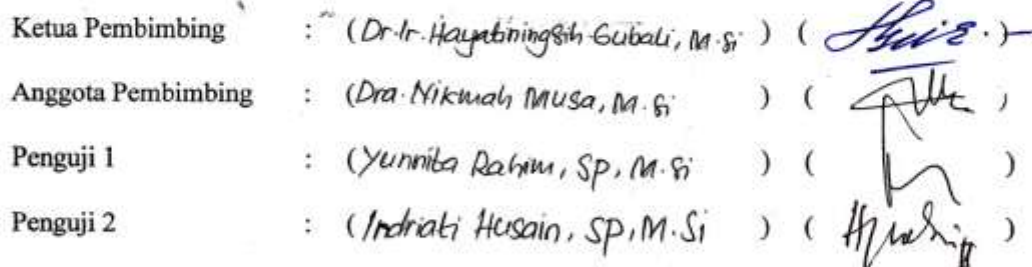 Ketua Pembimbing : (Dr.Ir. Hayatiningsih Gubali, M.Si ) ( )
Anggota Pembimbing : (Dra. Nikmah Musa, M.Si ) ( )
Penguji 1 : (Yunnita Rahim, SP, M.Si ) ( )
Penguji 2 : (Indriati Husain, SP, M.Si ) ( )